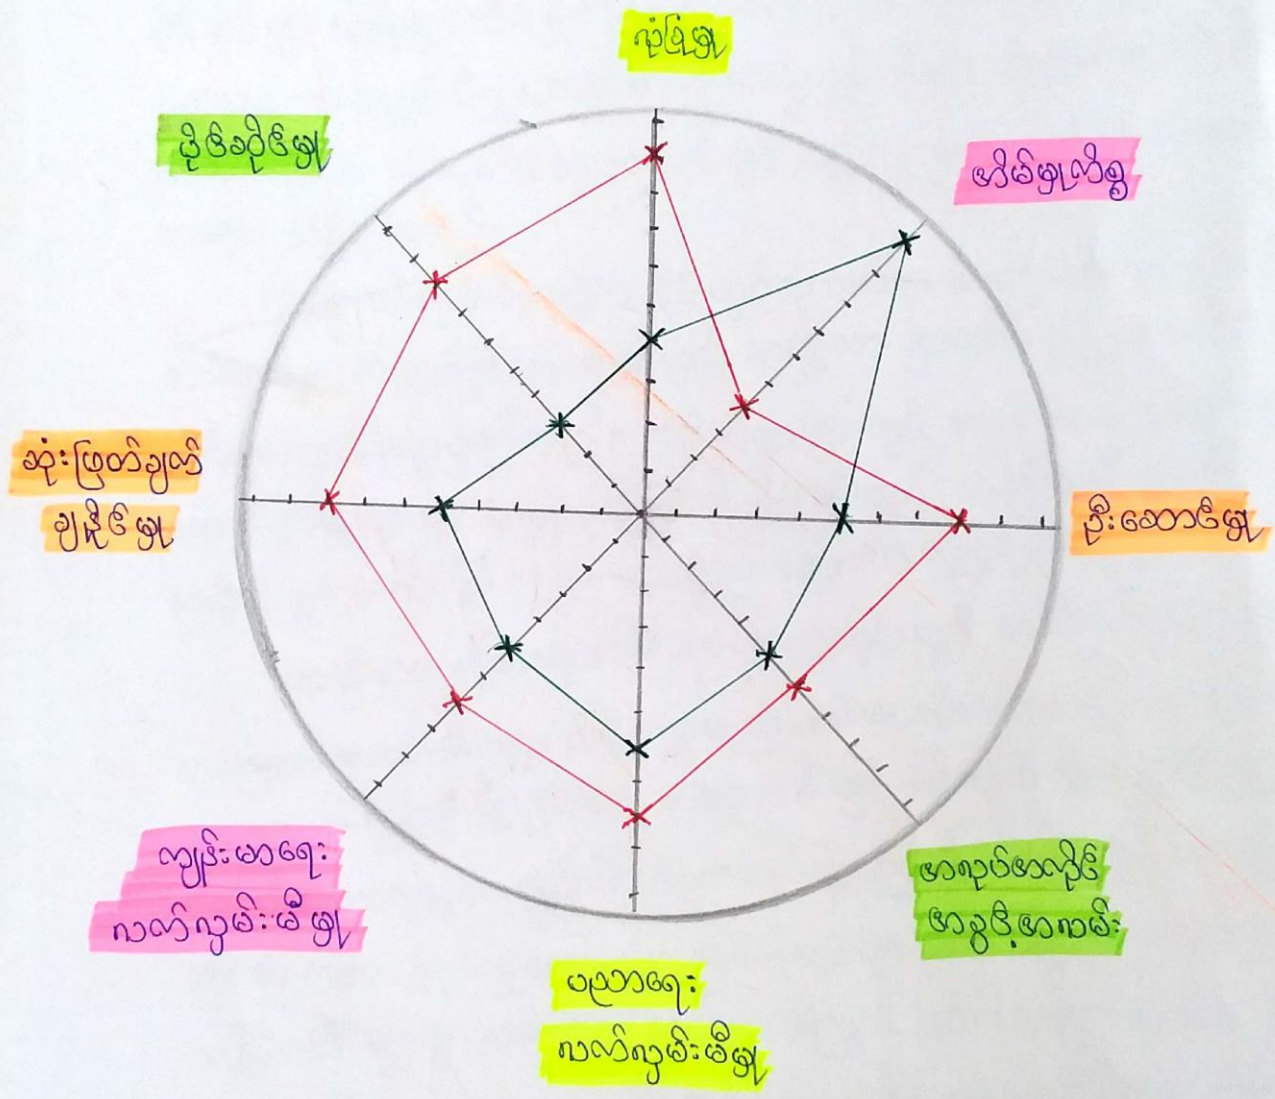 လုံခြုံမှု
ပိုင်ဆိုင်မှု
အိမ်မှုကိစ္စ
ဆုံးဖြတ်ချက်
ချနိုင်မှု
ဦးဆောင်မှု
ကျန်းမာရေး
လက်လှမ်းမီမှု
အလုပ်အကိုင်
အခွင့်အလမ်း
ပညာရေး
လက်လှမ်းမီမှု